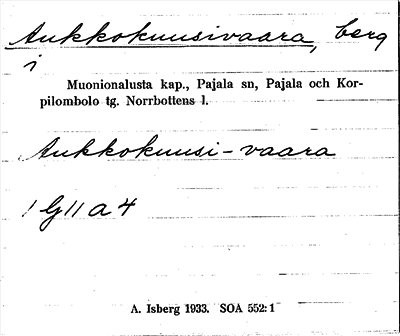 Aukkokuusivaara, berg
i
Muonionalusta kap., Pajala sn, Pajala och Kor-
pilombolo tg. Norrbottens l.
Aukkokuusi-vaara
1 G 11 a 4
A. Isberg 1933. SOA 552:1